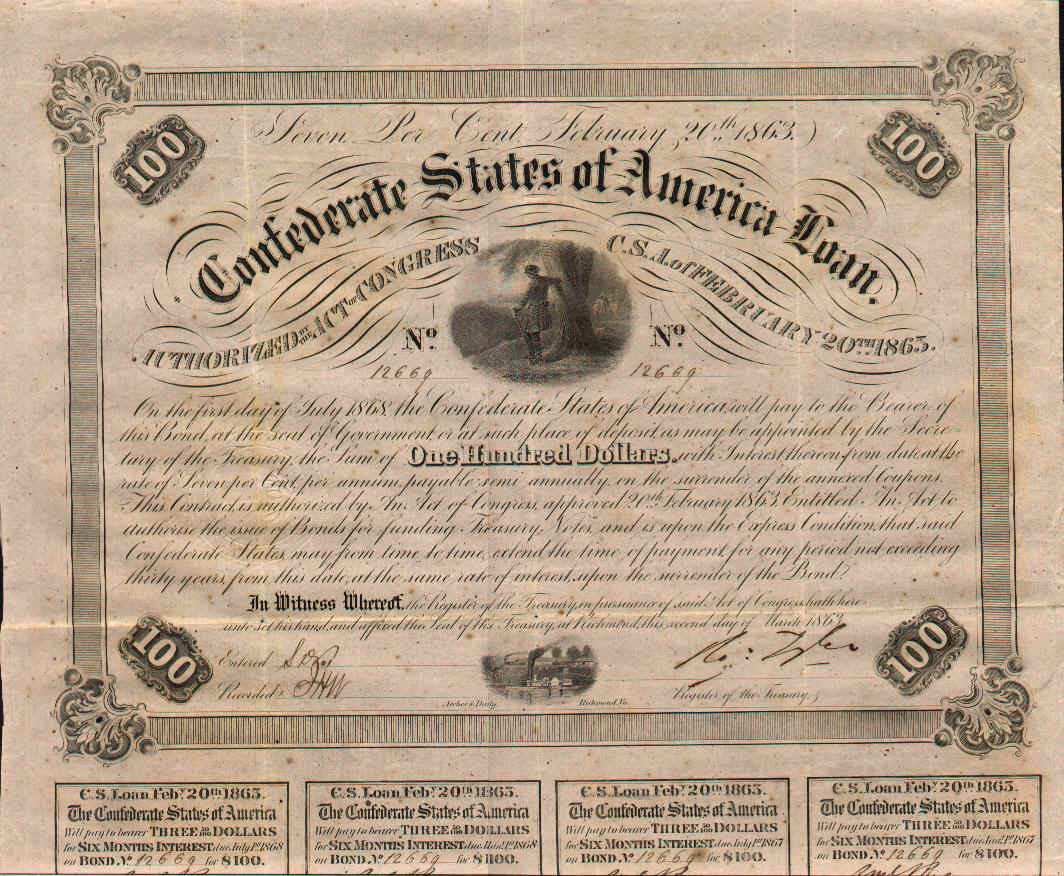 100
(Seven Per Cent. February 20th 1863.)
100
Confederate States of America Loan.
AUTHORIZED BY THE ACT OF CONGRESS C.S.A. of FEBRUARY 20TH 1863.
No. 12669
No. 12669
On the first day of July 1868, the Confederate States of America, will pay to the Bearer of
this Bond, at the seat of Government, or at such place of deposit, as may be appointed by the Secre-
tary of the Treasury, the Sum of One Hundred Dollars, with Interest thereon from date, at the
rate of Seven per Cent, per annum, payable semi annually, on the surrender of the annexed Coupons.
This Contract, is authorized by An Act of Congress, approved 20th February 1863, Entitled "An Act to
authorise the issue of Bonds for funding Treasury Notes", and is upon the Express Condition, that said
Confederate States, may from time to time, extend the time of payment, for any period not exceeding
thirty years, from this date, at the same rate of interest, upon the surrender of the Bond.
In Witness Whereof, the Register of the Treasury, in pursuance of said Act of Congress, hath here-
unto set his hand, and affixed the Seal of the Treasury, at Richmond, this second day of March 1863
100
Entered
Recorded
Ro: Tyler
Register of the Treasury.
100
Archer & Daly, Richmond, Va.
C.S. Loan Feby. 20th 1863.
The Confederate States of America
Will pay to bearer THREE 50/100 DOLLARS
for SIX MONTHS INTEREST due July 1st 1868
on BOND. No. 12669 for $100.
C.S. Loan Feby. 20th 1863.
The Confederate States of America
Will pay to bearer THREE 50/100 DOLLARS
for SIX MONTHS INTEREST due Jan. 1st 1868
on BOND. No. 12669 for $100.
C.S. Loan Feby. 20th 1863.
The Confederate States of America
Will pay to bearer THREE 50/100 DOLLARS
for SIX MONTHS INTEREST due July 1st 1867
on BOND. No. 12669 for $100.
C.S. Loan Feby. 20th 1863.
The Confederate States of America
Will pay to bearer THREE 50/100 DOLLARS
for SIX MONTHS INTEREST due Jan. 1st 1867
on BOND. No. 12669 for $100.